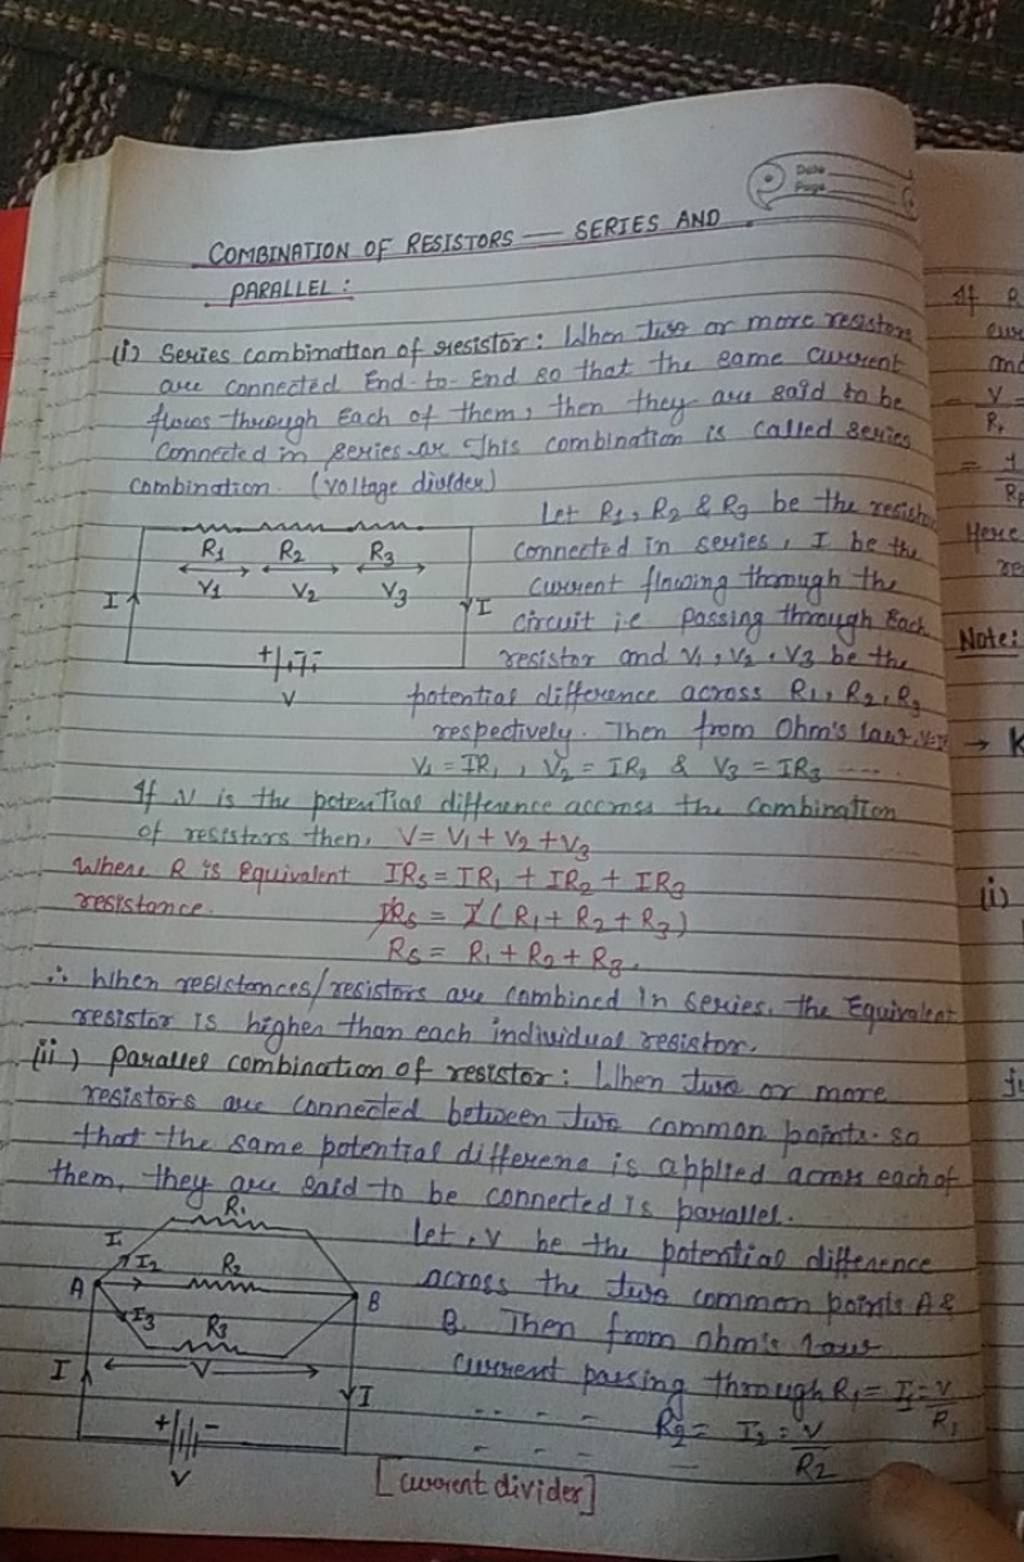 Date
Page
COMBINATION OF RESISTORS — SERIES AND
PARALLEL :
(i) Series combination of resistor : When two or more resistors
are connected End-to-End so that the same current
flows through Each of them, then they are said to be
Connected in series or This combination is called series
combination. (voltage divider)
Let R1, R2 & R3 be the resistor
connected in series, I be the
current flowing thorough the
circuit i.e passing through Each
resistor and V1, V2, V3 be the
potential difference across R1, R2, R3
respectively. Then from Ohm's law,
V1 = IR1, V2 = IR2 & V3 = IR3 ----
R1 R2 R3
V1 V2 V3
I I
+ -
V
If V is the potential difference accross the combination
of resistors then, V = V1 + V2 + V3
Where R is Equivalent IRs = IR1 + IR2 + IR3
resistance. IRs = I (R1 + R2 + R3)
Rs = R1 + R2 + R3.
∴ When resistances/resistors are combined In series, the Equivalent
resistor is higher than each individual resistor.
(ii) Parallel combination of resistor : When two or more
resistors are connected between two common points so
that the same potential differene is applied across each of
them, they are said to be connected is parallel.
Let, V be the potential difference
across the two common points A &
B. Then from ohm's law
current passing through R1 = I1 = V/R1
-- - - R2 = I2 = V/R2
- - - -
R1
I1
I2 R2
A B
I3 R3
I V I
+ -
V
[current divider]
If R
cur
and
V =
= 1
Here
re
Note:
→ K
(i)